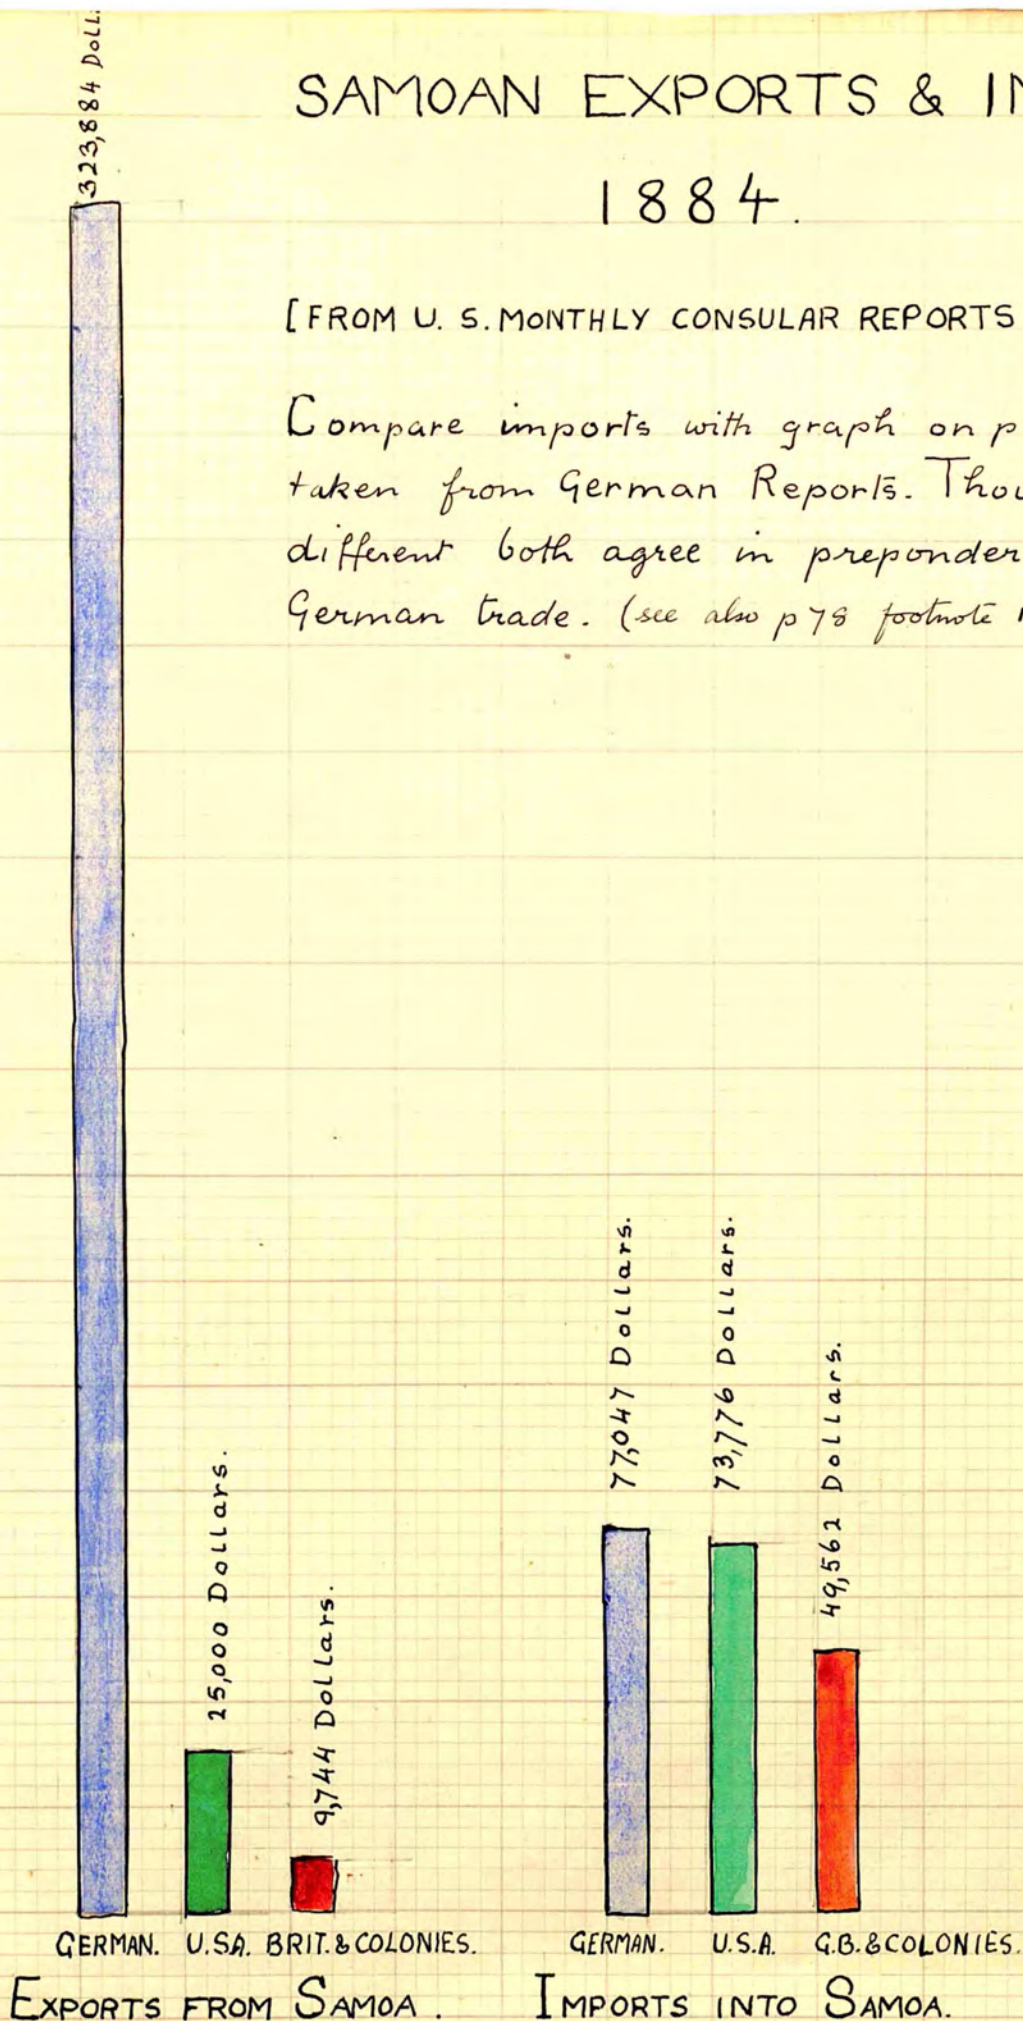 SAMOAN EXPORTS &
1884.
[FROM U. S. MONTHLY CONSULAR REPORTS
Compare imports with graph on p
taken from German Reports. Thou
different both agree in preponder
German trade. (see also p 78 footnote
323,884 Doll
25,000 Dollars.
9,744 Dollars.
77,047 Dollars.
73,776 Dollars.
49,562 Dollars.
GERMAN. U.S.A. BRIT. & COLONIES.
GERMAN. U.S.A. G.B. & COLONIES.
EXPORTS FROM SAMOA.
IMPORTS INTO SAMOA.